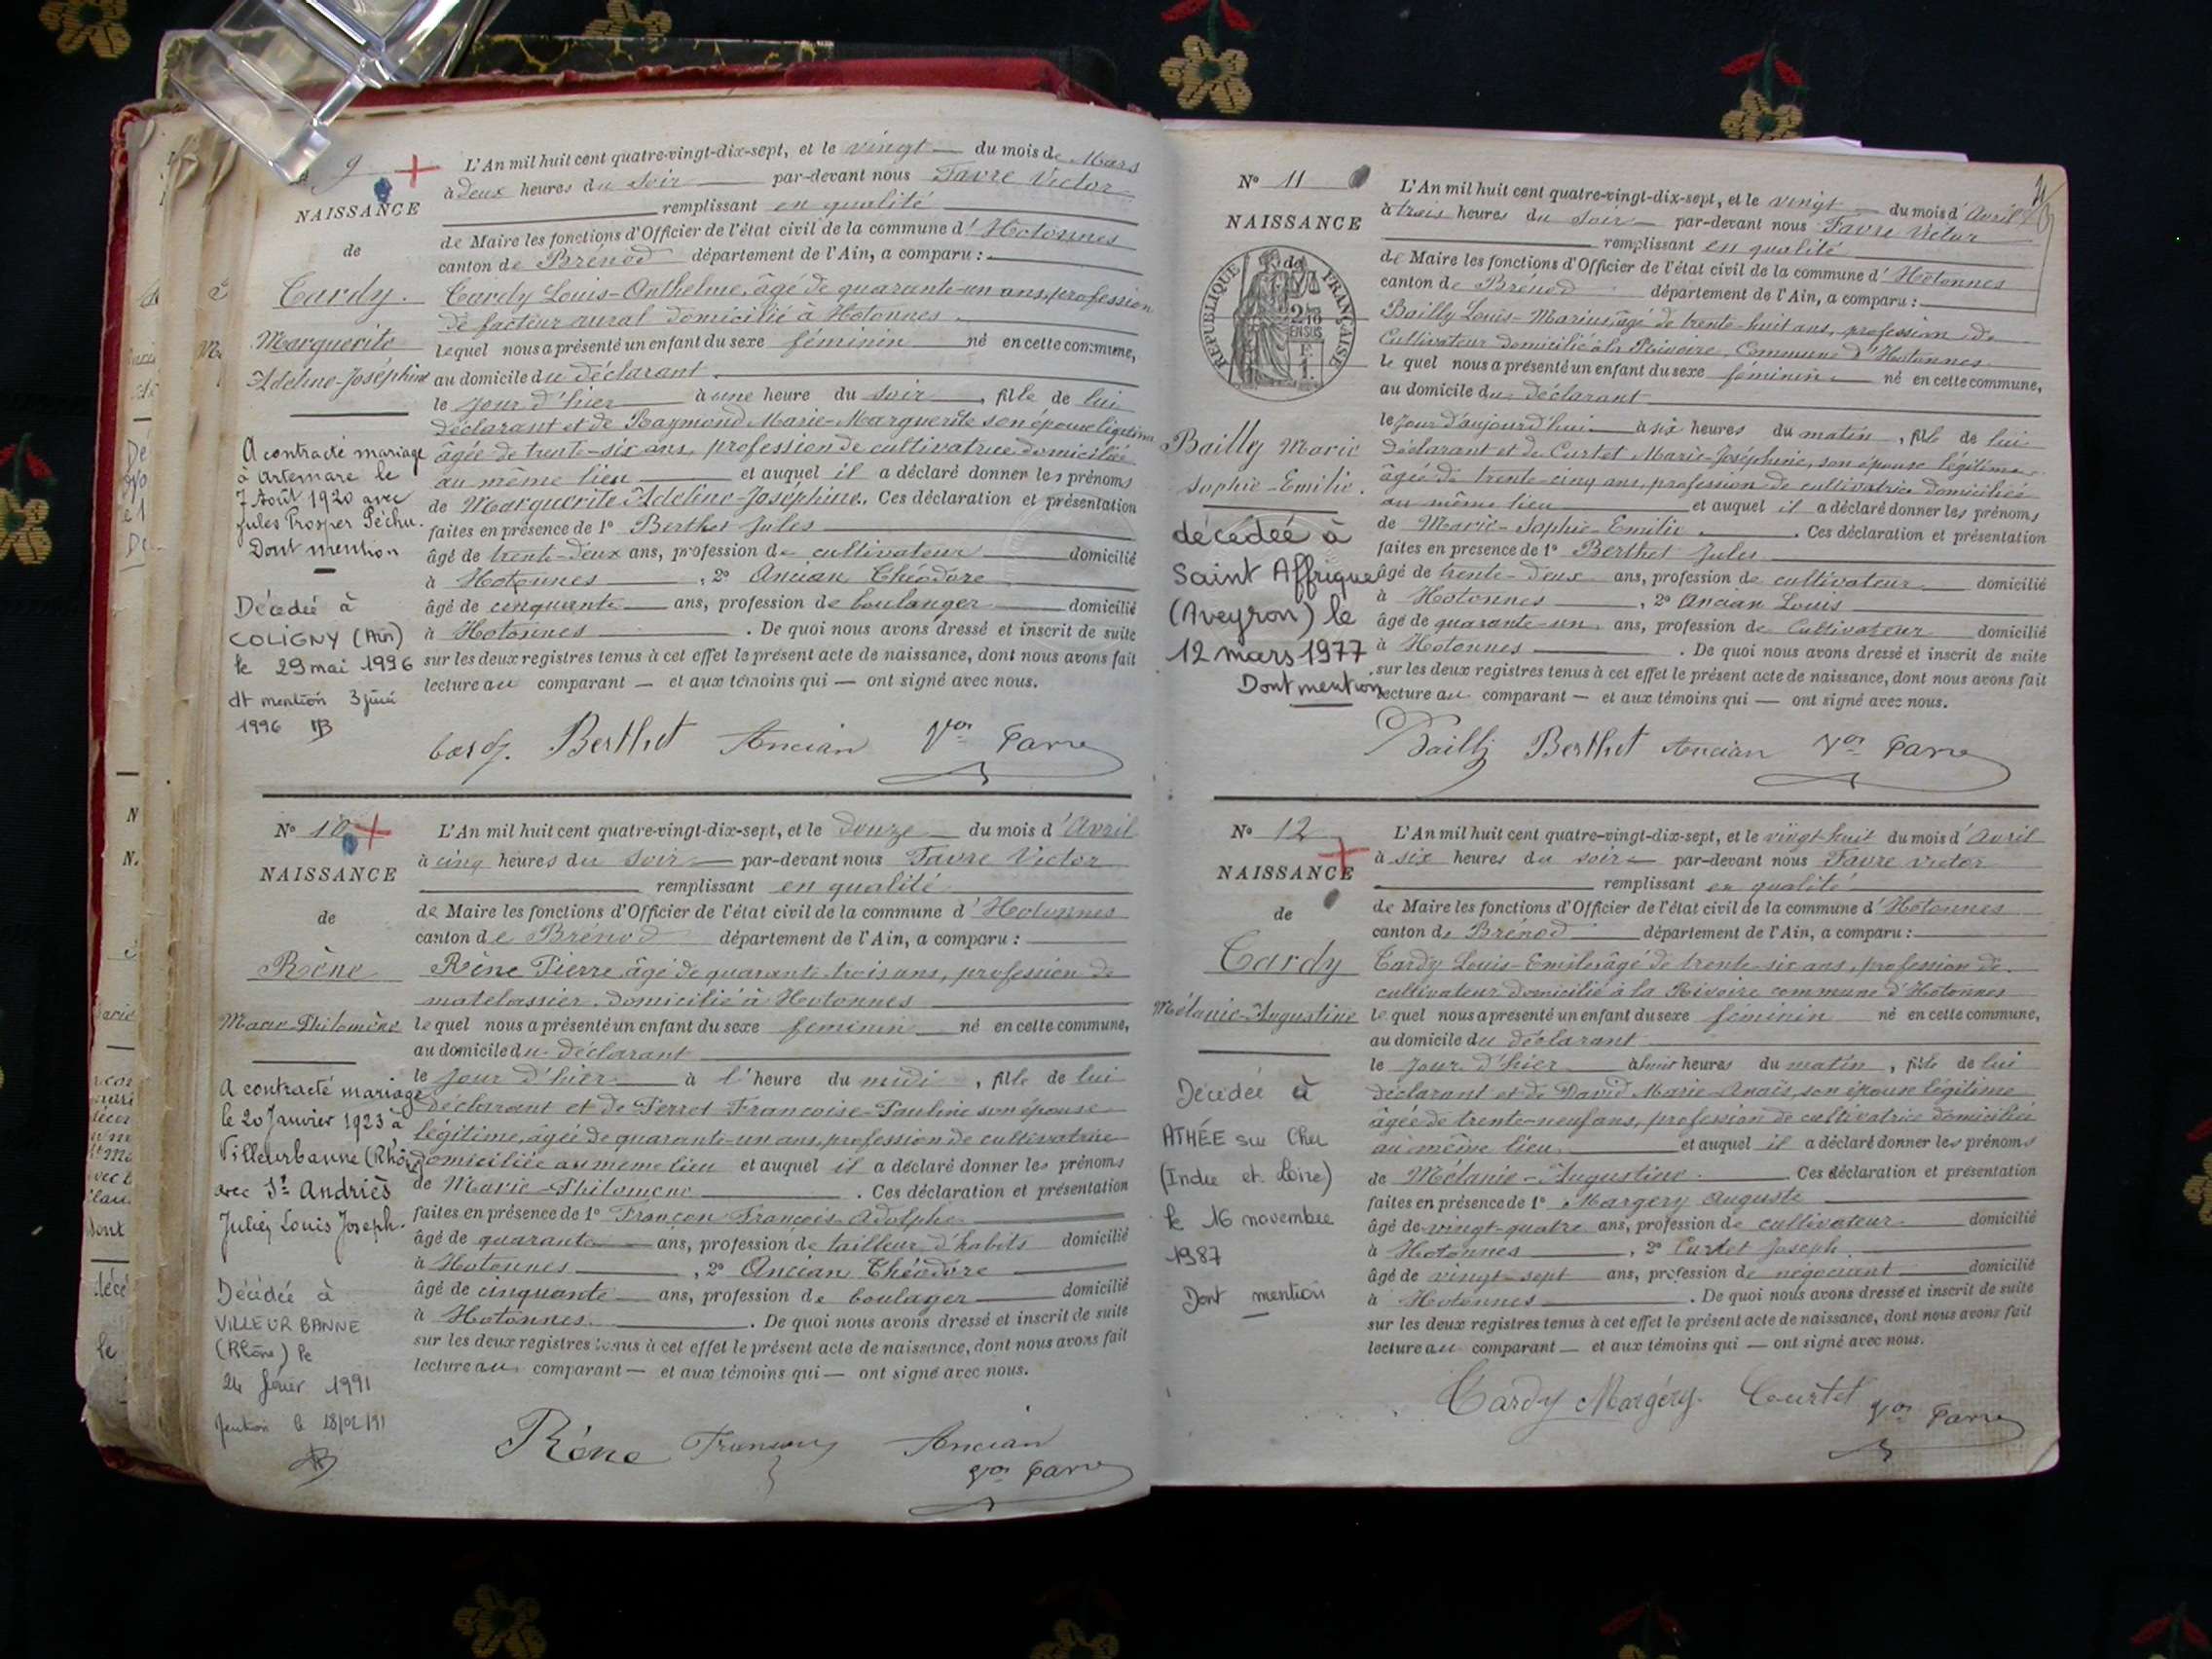 9
NAISSANCE
de
Cardy.
Marguerite
Adeline-Joséphine
A contracté mariage
à Artemare le
7 Août 1920 avec
Jules Prosper Péchu.
Dont mention
Décédée à
COLIGNY (Ain)
le 29 mai 1996
dt mention 3 juin
1996
L'An mil huit cent quatre-vingt-dix-sept, et le vingt du mois de Mars
à deux heures du soir par-devant nous Favre Victor
remplissant en qualité
de Maire les fonctions d'Officier de l'état civil de la commune d'Hotonnes
canton de Brénod département de l'Ain, a comparu :
Cardy Louis-Anthelme, âgé de quarante-un ans, profession
de facteur rural domicilié à Hotonnes
lequel nous a présenté un enfant du sexe féminin né en cette commune,
au domicile du déclarant
le jour d'hier à une heure du soir, fille de lui
déclarant et de Raymond Marie-Marguerite son épouse légitime
âgée de trente-six ans, profession de cultivatrice domiciliée
au même lieu et auquel il a déclaré donner les prénoms
de Marguerite Adeline-Joséphine. Ces déclaration et présentation
faites en présence de 1° Berthet Jules
âgé de trente-deux ans, profession de cultivateur domicilié
à Hotonnes, 2° Ancian Théodore
âgé de cinquante ans, profession de boulanger domicilié
à Hotonnes. De quoi nous avons dressé et inscrit de suite
sur les deux registres tenus à cet effet le présent acte de naissance, dont nous avons fait
lecture au comparant — et aux témoins qui — ont signé avec nous.
Cardy. Berthet Ancian Vor Favre
N° 10
NAISSANCE
de
Rène
Marie-Philomène
A contracté mariage
le 20 Janvier 1923 à
Villeurbanne (Rhône)
avec St Andriès
Julien Louis Joseph.
Décédée à
VILLEURBANNE
(Rhône) le
24 février 1991
L'An mil huit cent quatre-vingt-dix-sept, et le douze du mois d'Avril
à cinq heures du soir par-devant nous Favre Victor
remplissant en qualité
de Maire les fonctions d'Officier de l'état civil de la commune d'Hotonnes
canton de Brénod département de l'Ain, a comparu :
Rène Pierre, âgé de quarante-trois ans, profession de
matelassier domicilié à Hotonnes
lequel nous a présenté un enfant du sexe féminin né en cette commune,
au domicile du déclarant
le jour d'hier à l'heure du midi, fille de lui
déclarant et de Perret Françoise-Pauline son épouse
légitime, âgée de quarante-un ans, profession de cultivatrice
domiciliée au même lieu et auquel il a déclaré donner les prénoms
de Marie-Philomène. Ces déclaration et présentation
faites en présence de 1° Françon François-Adolphe
âgé de quarante ans, profession de tailleur d'habits domicilié
à Hotonnes, 2° Ancian Théodore
âgé de cinquante ans, profession de boulager domicilié
à Hotonnes. De quoi nous avons dressé et inscrit de suite
sur les deux registres tenus à cet effet le présent acte de naissance, dont nous avons fait
lecture au comparant — et aux témoins qui — ont signé avec nous.
Rène Françon Ancian
Vor Favre
N° 11
NAISSANCE
de
RÉPUBLIQUE FRANÇAISE
2/10 EN SUS
Bailly Marie
Sophie-Emilie.
décédée à
Saint Affrique
(Aveyron) le
12 mars 1977
Dont mention
L'An mil huit cent quatre-vingt-dix-sept, et le vingt du mois d'Avril
à trois heures du soir par-devant nous Favre Victor
remplissant en qualité
de Maire les fonctions d'Officier de l'état civil de la commune d'Hotonnes
canton de Brénod département de l'Ain, a comparu :
Bailly Louis-Marius, âgé de trente-huit ans, profession de
Cultivateur domicilié à la Rivoire, Commune d'Hotonnes
lequel nous a présenté un enfant du sexe féminin né en cette commune,
au domicile du déclarant
le jour d'aujourd'hui à six heures du matin, fille de lui
déclarant et de Curtet Marie-Joséphine, son épouse légitime
âgée de trente-cinq ans, profession de cultivatrice domiciliée
au même lieu et auquel il a déclaré donner les prénoms
de Marie-Sophie-Emilie. Ces déclaration et présentation
faites en présence de 1° Berthet Jules
âgé de trente-deux ans, profession de cultivateur domicilié
à Hotonnes, 2° Ancian Louis
âgé de quarante-un ans, profession de Cultivateur domicilié
à Hotonnes. De quoi nous avons dressé et inscrit de suite
sur les deux registres tenus à cet effet le présent acte de naissance, dont nous avons fait
lecture au comparant — et aux témoins qui — ont signé avec nous.
Bailly Berthet Ancian Vor Favre
N° 12
NAISSANCE
de
Cardy
Mélanie-Augustine
Décédée à
ATHÉE sur Cher
(Indre et Loire)
le 16 novembre
1987
Dont mention
L'An mil huit cent quatre-vingt-dix-sept, et le vingt-huit du mois d'Avril
à six heures du soir par-devant nous Favre Victor
remplissant en qualité
de Maire les fonctions d'Officier de l'état civil de la commune d'Hotonnes
canton de Brénod département de l'Ain, a comparu :
Cardy Louis-Emile, âgé de trente-six ans, profession de
cultivateur domicilié à la Rivoire commune d'Hotonnes
lequel nous a présenté un enfant du sexe féminin né en cette commune,
au domicile du déclarant
le jour d'hier à heures du matin, fille de lui
déclarant et de David Marie-Anaïs, son épouse légitime
âgée de trente-neuf ans, profession de cultivatrice domiciliée
au même lieu et auquel il a déclaré donner les prénoms
de Mélanie-Augustine. Ces déclaration et présentation
faites en présence de 1° Margery Auguste
âgé de vingt-quatre ans, profession de cultivateur domicilié
à Hotonnes, 2° Curtet Joseph
âgé de vingt-sept ans, profession de négociant domicilié
à Hotonnes. De quoi nous avons dressé et inscrit de suite
sur les deux registres tenus à cet effet le présent acte de naissance, dont nous avons fait
lecture au comparant — et aux témoins qui — ont signé avec nous.
Cardy Margéry. Curtet Vor Favre